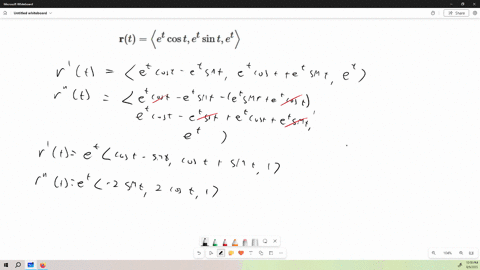 Microsoft Whiteboard
Untitled whiteboard
Share
r(t) = ⟨e^t cos t, e^t sin t, e^t⟩
r'(t) = ⟨e^t cost - e^t sint, e^t cost + e^t sint, e^t⟩
r''(t) = ⟨e^t cost - e^t sint - (e^t sint + e^t cost)
e^t cost - e^t sint + e^t cost + e^t sint,
e^t ⟩
r'(t) = e^t ⟨cost - sint, cost + sint, 1⟩
r''(t) = e^t ⟨-2 sint, 2 cost, 1⟩